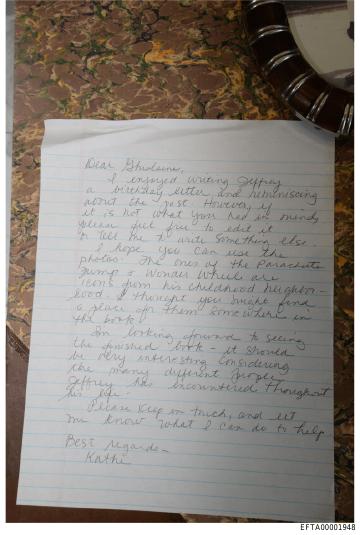 Dear Ghislaine,
I enjoyed writing Jeffrey
a birthday letter and reminiscing
about the past. However, if
it is not what you had in mind,
please feel free to edit it
or tell me to write something else.
I hope you can use the
photos. The ones of the Parachute
Jump & Wonder Wheel are
icons from his childhood neighbor-
hood. I thought you might find
a place for them somewhere in
the book!
I'm looking forward to seeing
the finished book - it should
be very interesting considering
the many different people
Jeffrey has encountered throughout
his life.
Please keep in touch, and let
me know what I can do to help.
Best regards -
Kathi
EFTA00001948